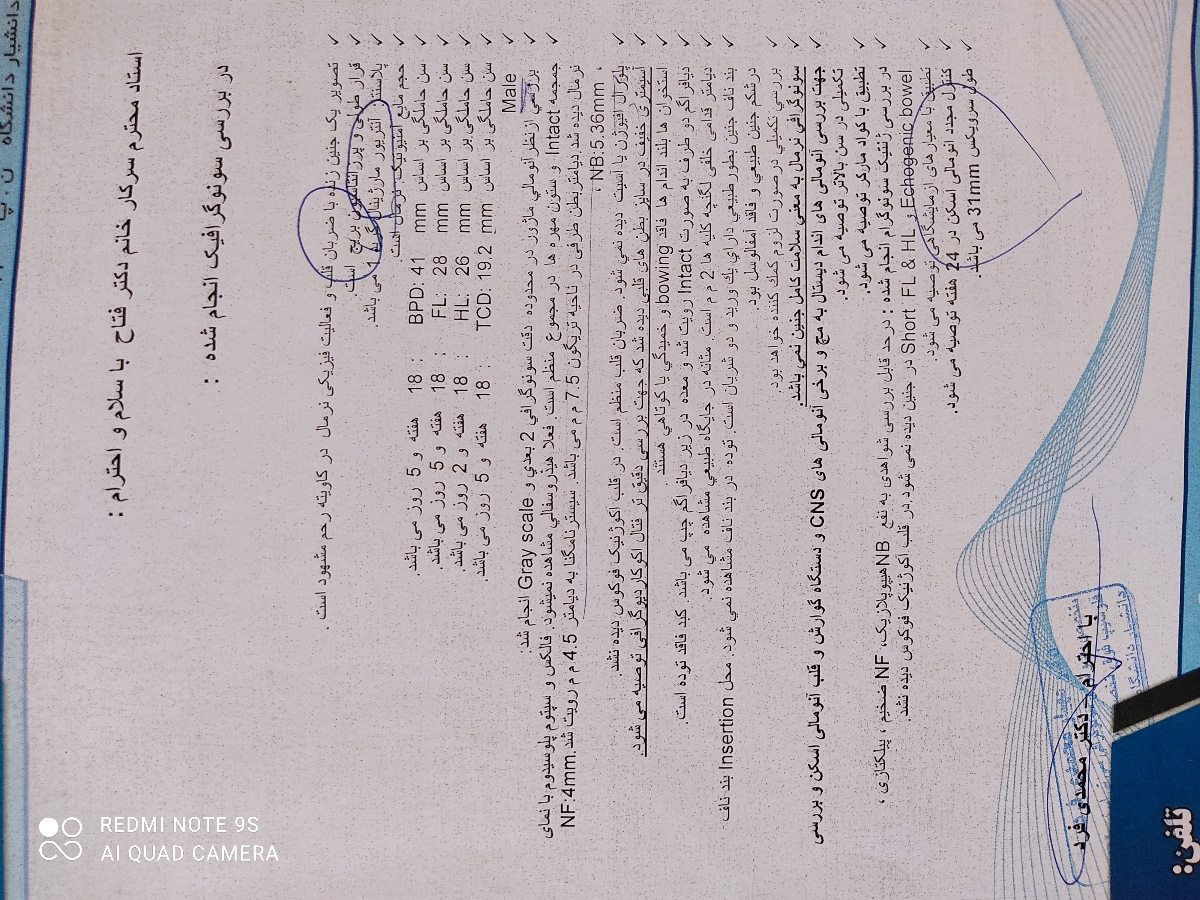 استاد محترم سرکار خانم دکتر فتاح با سلام و احترام :
در بررسی سونوگرافیک انجام شده :
تصویر یک جنین زنده با ضربان قلب و فعالیت فیزیکی نرمال در کاویته رحم مشهود است .
قرار طولی و پرزانتاسیون بریچ است .
پلاسنتا آنتریور مارژینال گرید 1 می باشد.
حجم مایع آمنیوتیک نرمال است .
سن حاملگی بر اساس BPD: 41 mm : 18 هفته و 5 روز می باشد .
سن حاملگی بر اساس FL: 28 mm : 18 هفته و 5 روز می باشد .
سن حاملگی بر اساس HL: 26 mm : 18 هفته و 2 روز می باشد .
سن حاملگی بر اساس TCD: 19.2 mm : 18 هفته و 5 روز می باشد .
Male
بررسي ازنظر آنومالي ماژور در محدوده دقت سونوگرافي 2 بعدي و Gray scale انجام شد:
جمجمه Intact و ستون مهره ها در مجموع منظم است. فعلا هیدروسفالي مشاهده نمیشود. فالکس و سپتوم پلوسیدوم با نمای
نرمال دیده شد دیامتربطن طرفی در ناحیه تریگون 7.5 م م می باشد. سیسترنامگنا به دیامتر 4.5 م م رویت شد. NF:4mm
، NB:5.36mm ،
پلورال افیوژن یا آسیت دیده نمي شود. ضربان قلب منظم است. در قلب اکوژنیک فوکوس دیده نشد.
آسیمتری خفیف در سایز بطن های قلبی دیده شد که جهت بررسی دقیق تر فتال اکوکاردیوگرافی توصیه می شود.
استخوان ها بلند اندام ها فاقد bowing و خمیدگي یا کوتاهي هستند
دیافراگم دو طرف به صورت Intact رویت شد و معده در زیر دیافراگم چپ می باشد. کبد فاقد توده است.
دیامتر قدامی خلفی لگنچه کلیه ها 2 م م است. مثانه در جایگاه طبیعي مشاهده مي شود.
بند ناف جنین بطور طبیعي دارای یك ورید و دو شریان است. توده در بند ناف مشاهده نمي شود. محل Insertion بند ناف
در شکم جنین طبیعي و فاقد امفالوسل بود.
بررسي تکمیلي در صورت لزوم کمك کننده خواهد بود.
سونوگرافی نرمال به معني سلامت کامل جنین نمي باشد.
جهت بررسی آنومالی های اندام دیستال به مچ و برخی آنومالی های CNS و دستگاه گوارش و قلب آنومالی اسکن و بررسی
تکمیلی در سن بالاتر توصیه می شود.
تطبیق با کواد مارکر توصیه می شود.
در بررسی ژنتیک سونوگرام انجام شده : درحد قابل بررسی شواهدی به نفع NB هیپوپلازیک، NF ضخیم ، پیلکتازی ،
Echogenic bowel و Short FL & HL در جنین دیده نمی شود.در قلب اکوژنیک فوکوس دیده نشد.
تطبیق با معیارهای آزمایشگاهی توصیه می شود.
کنترل مجدد آنومالی اسکن در 24 هفته توصیه می شود.
طول سرویکس 31mm می باشد.
با احترام – دکتر محمدی فرد
تلفن:
REDMI NOTE 9S
AI QUAD CAMERA